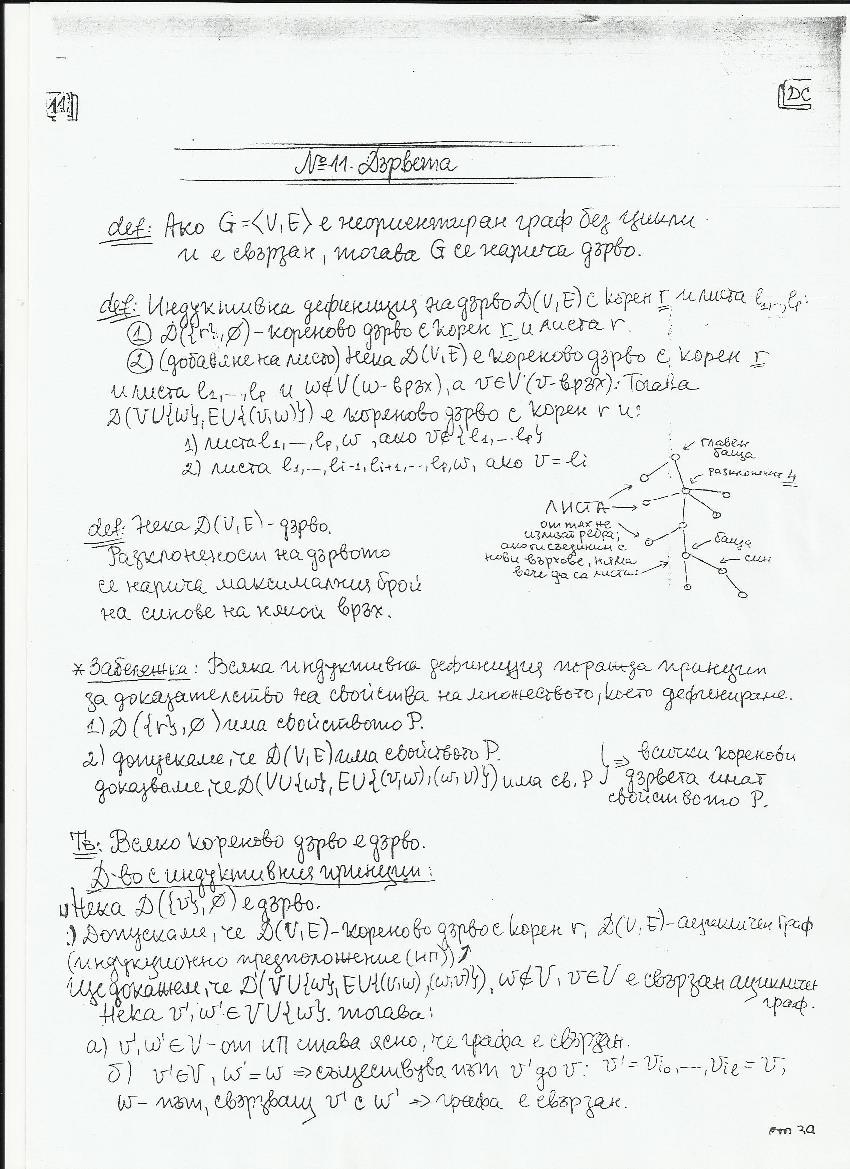 11.
DC
№11. Дървета
def: Ако G=<V,E> е неориентиран граф без цикли
и е свързан, тогава G се нарича дърво.
def: Индуктивна дефиниция на дърво D(V,E) с корен r и листа l1,..,lp:
① D({r},∅) - кореново дърво с корен r и листа r.
② (добавяне на листо) Нека D(V,E) е кореново дърво с корен r
и листа l1,..,lp и w∉V (w-връх), а v∈V (v-връх). Тогава
D(VU{w},EU{(v,w)}) е кореново дърво с корен r и:
1) листа l1,..,lp,w, ако v∉{l1,..lp}
2) листа l1,..,li-1,li+1,..,lp,w, ако v=li
главен
баща
разклонение 4
ЛИСТА
от тях не
излизат ребра;
ако ги съединим с
нови върхове, няма
вече да са листа.
баща
син
def: Нека D(V,E) - дърво.
Разклоненост на дървото
се нарича максималния брой
на синове на някой връх.
* Забележка: Всяка индуктивна дефиниция поражда принцип
за доказателство на свойства на множеството, което дефинираме.
1) D({r},∅) има свойството P.
2) допускаме, че D(V,E) има свойството P.
доказваме, че D(VU{w},EU{(v,w),(w,v)}) има св. P
⇒ всички коренови
дървета имат
свойството P.
Тв: Всяко кореново дърво е дърво.
Д-во с индуктивния принцип:
1) Нека D({v},∅) е дърво.
2) Допускаме, че D(V,E) - кореново дърво с корен r, D(V,E) - ацикличен граф
(индукционно предположение (ИП))
Ще докажем, че D(VU{w},EU{(v,w),(w,v)}), w∉V, v∈V е свързан ацикличен
граф.
Нека v',w'∈VU{w}. тогава:
а) v',w'∈V - от ИП става ясно, че графа е свързан.
б) v'∈V, w'=w ⇒ съществува път v' до v: v'=vi0,..,vie=v,
w - път, свързващ v' с w' ⇒ графа е свързан.